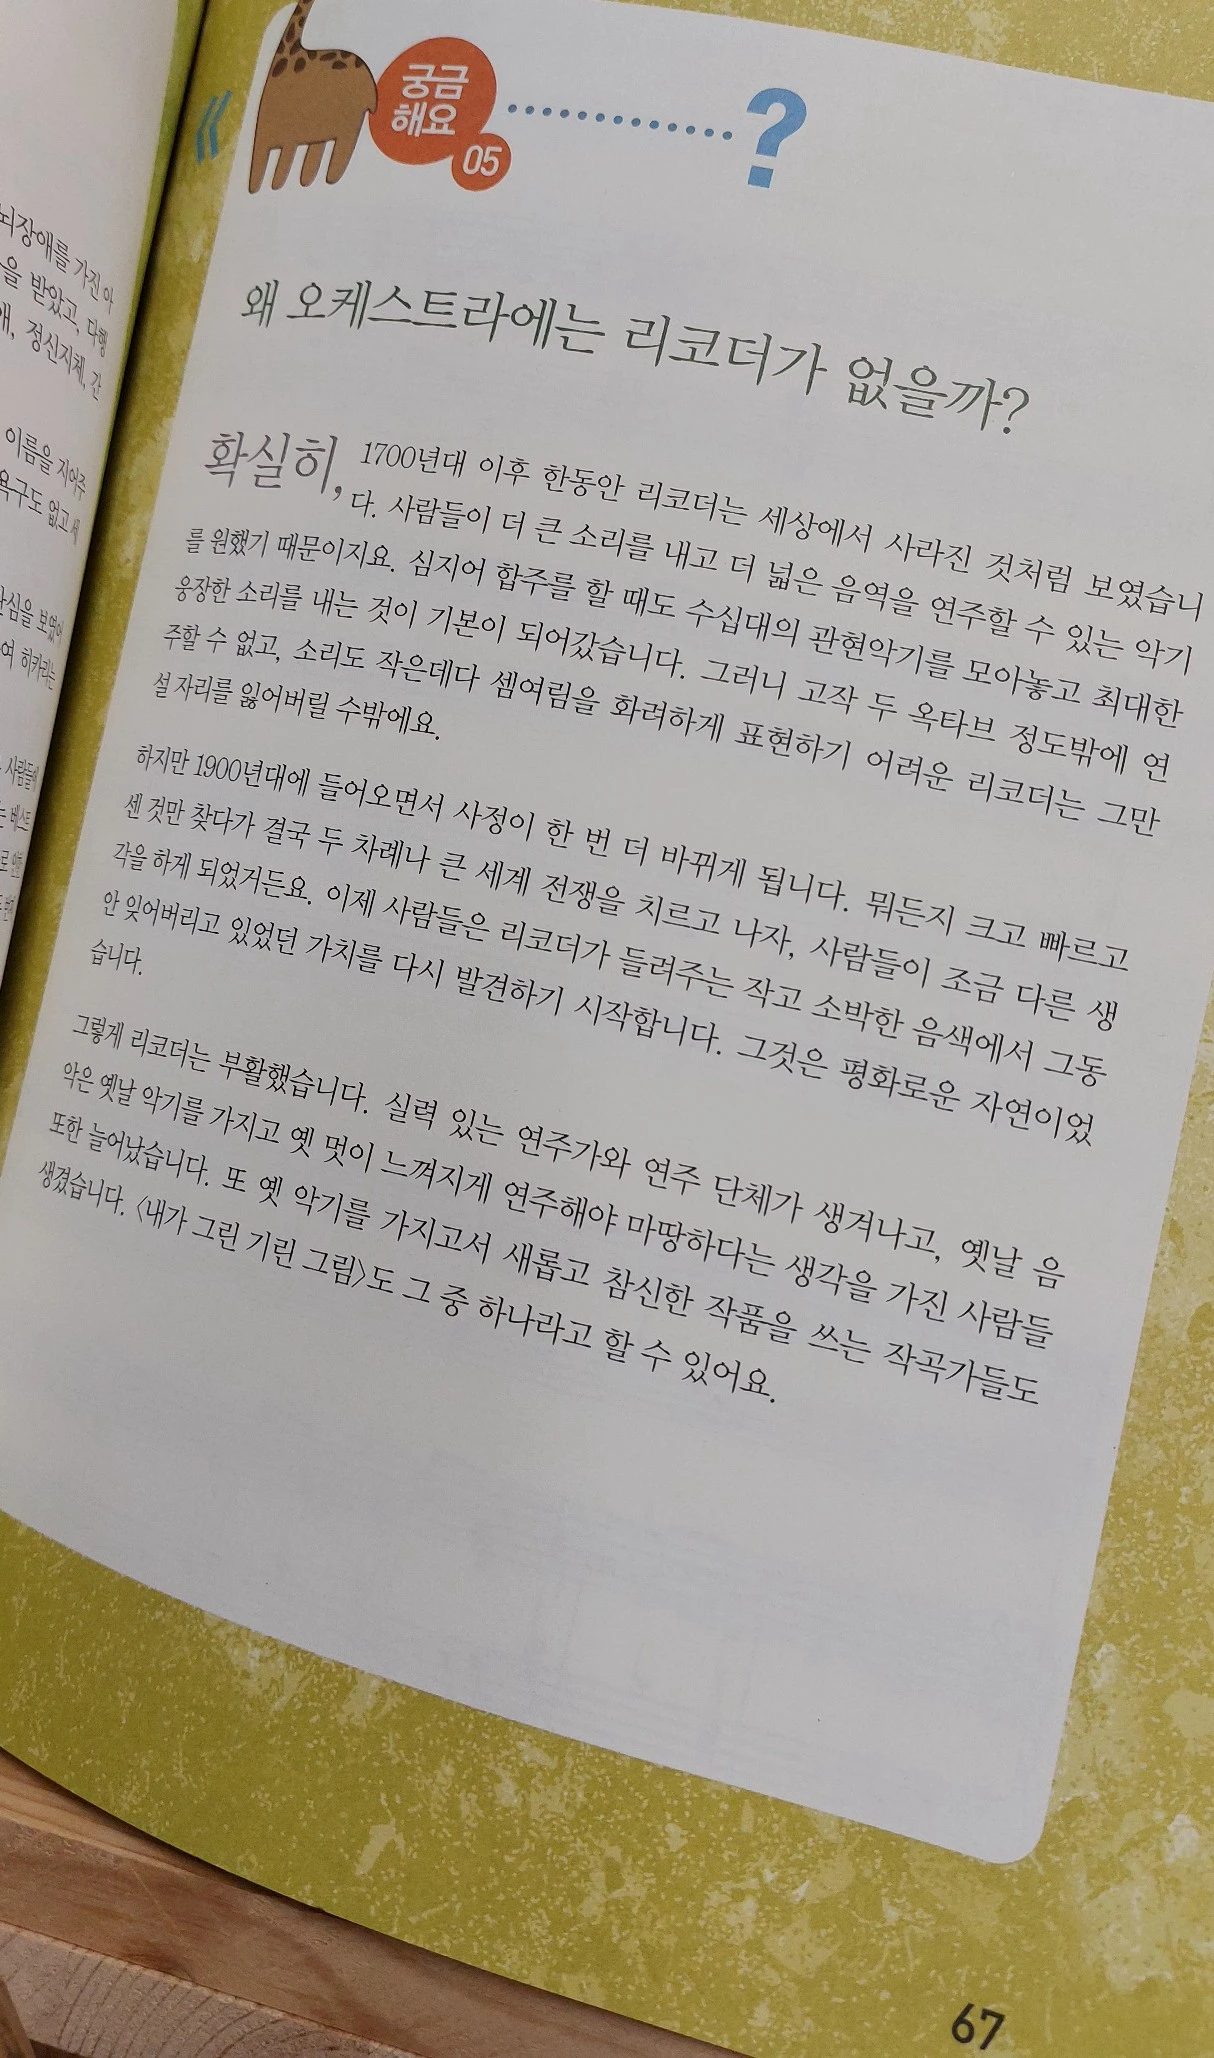 뇌장애를 가진 아
을 받았고, 다행
애, 정신지체, 간
이름을 지어주
욕구도 없고 세
관심을 보였어
여 히카리는
사람들에
는 베스트
궁금
해요
05
?
왜 오케스트라에는 리코더가 없을까?
확실히, 1700년대 이후 한동안 리코더는 세상에서 사라진 것처럼 보였습니
다. 사람들이 더 큰 소리를 내고 더 넓은 음역을 연주할 수 있는 악기
를 원했기 때문이지요. 심지어 합주를 할 때도 수십대의 관현악기를 모아놓고 최대한
웅장한 소리를 내는 것이 기본이 되어갔습니다. 그러니 고작 두 옥타브 정도밖에 연
주할 수 없고, 소리도 작은데다 셈여림을 화려하게 표현하기 어려운 리코더는 그만
설 자리를 잃어버릴 수밖에요.
하지만 1900년대에 들어오면서 사정이 한 번 더 바뀌게 됩니다. 뭐든지 크고 빠르고
센 것만 찾다가 결국 두 차례나 큰 세계 전쟁을 치르고 나자, 사람들이 조금 다른 생
각을 하게 되었거든요. 이제 사람들은 리코더가 들려주는 작고 소박한 음색에서 그동
안 잊어버리고 있었던 가치를 다시 발견하기 시작합니다. 그것은 평화로운 자연이었
습니다.
그렇게 리코더는 부활했습니다. 실력 있는 연주가와 연주 단체가 생겨나고, 옛날 음
악은 옛날 악기를 가지고 옛 멋이 느껴지게 연주해야 마땅하다는 생각을 가진 사람들
또한 늘어났습니다. 또 옛 악기를 가지고서 새롭고 참신한 작품을 쓰는 작곡가들도
생겼습니다. 〈내가 그린 기린 그림〉도 그 중 하나라고 할 수 있어요.
67